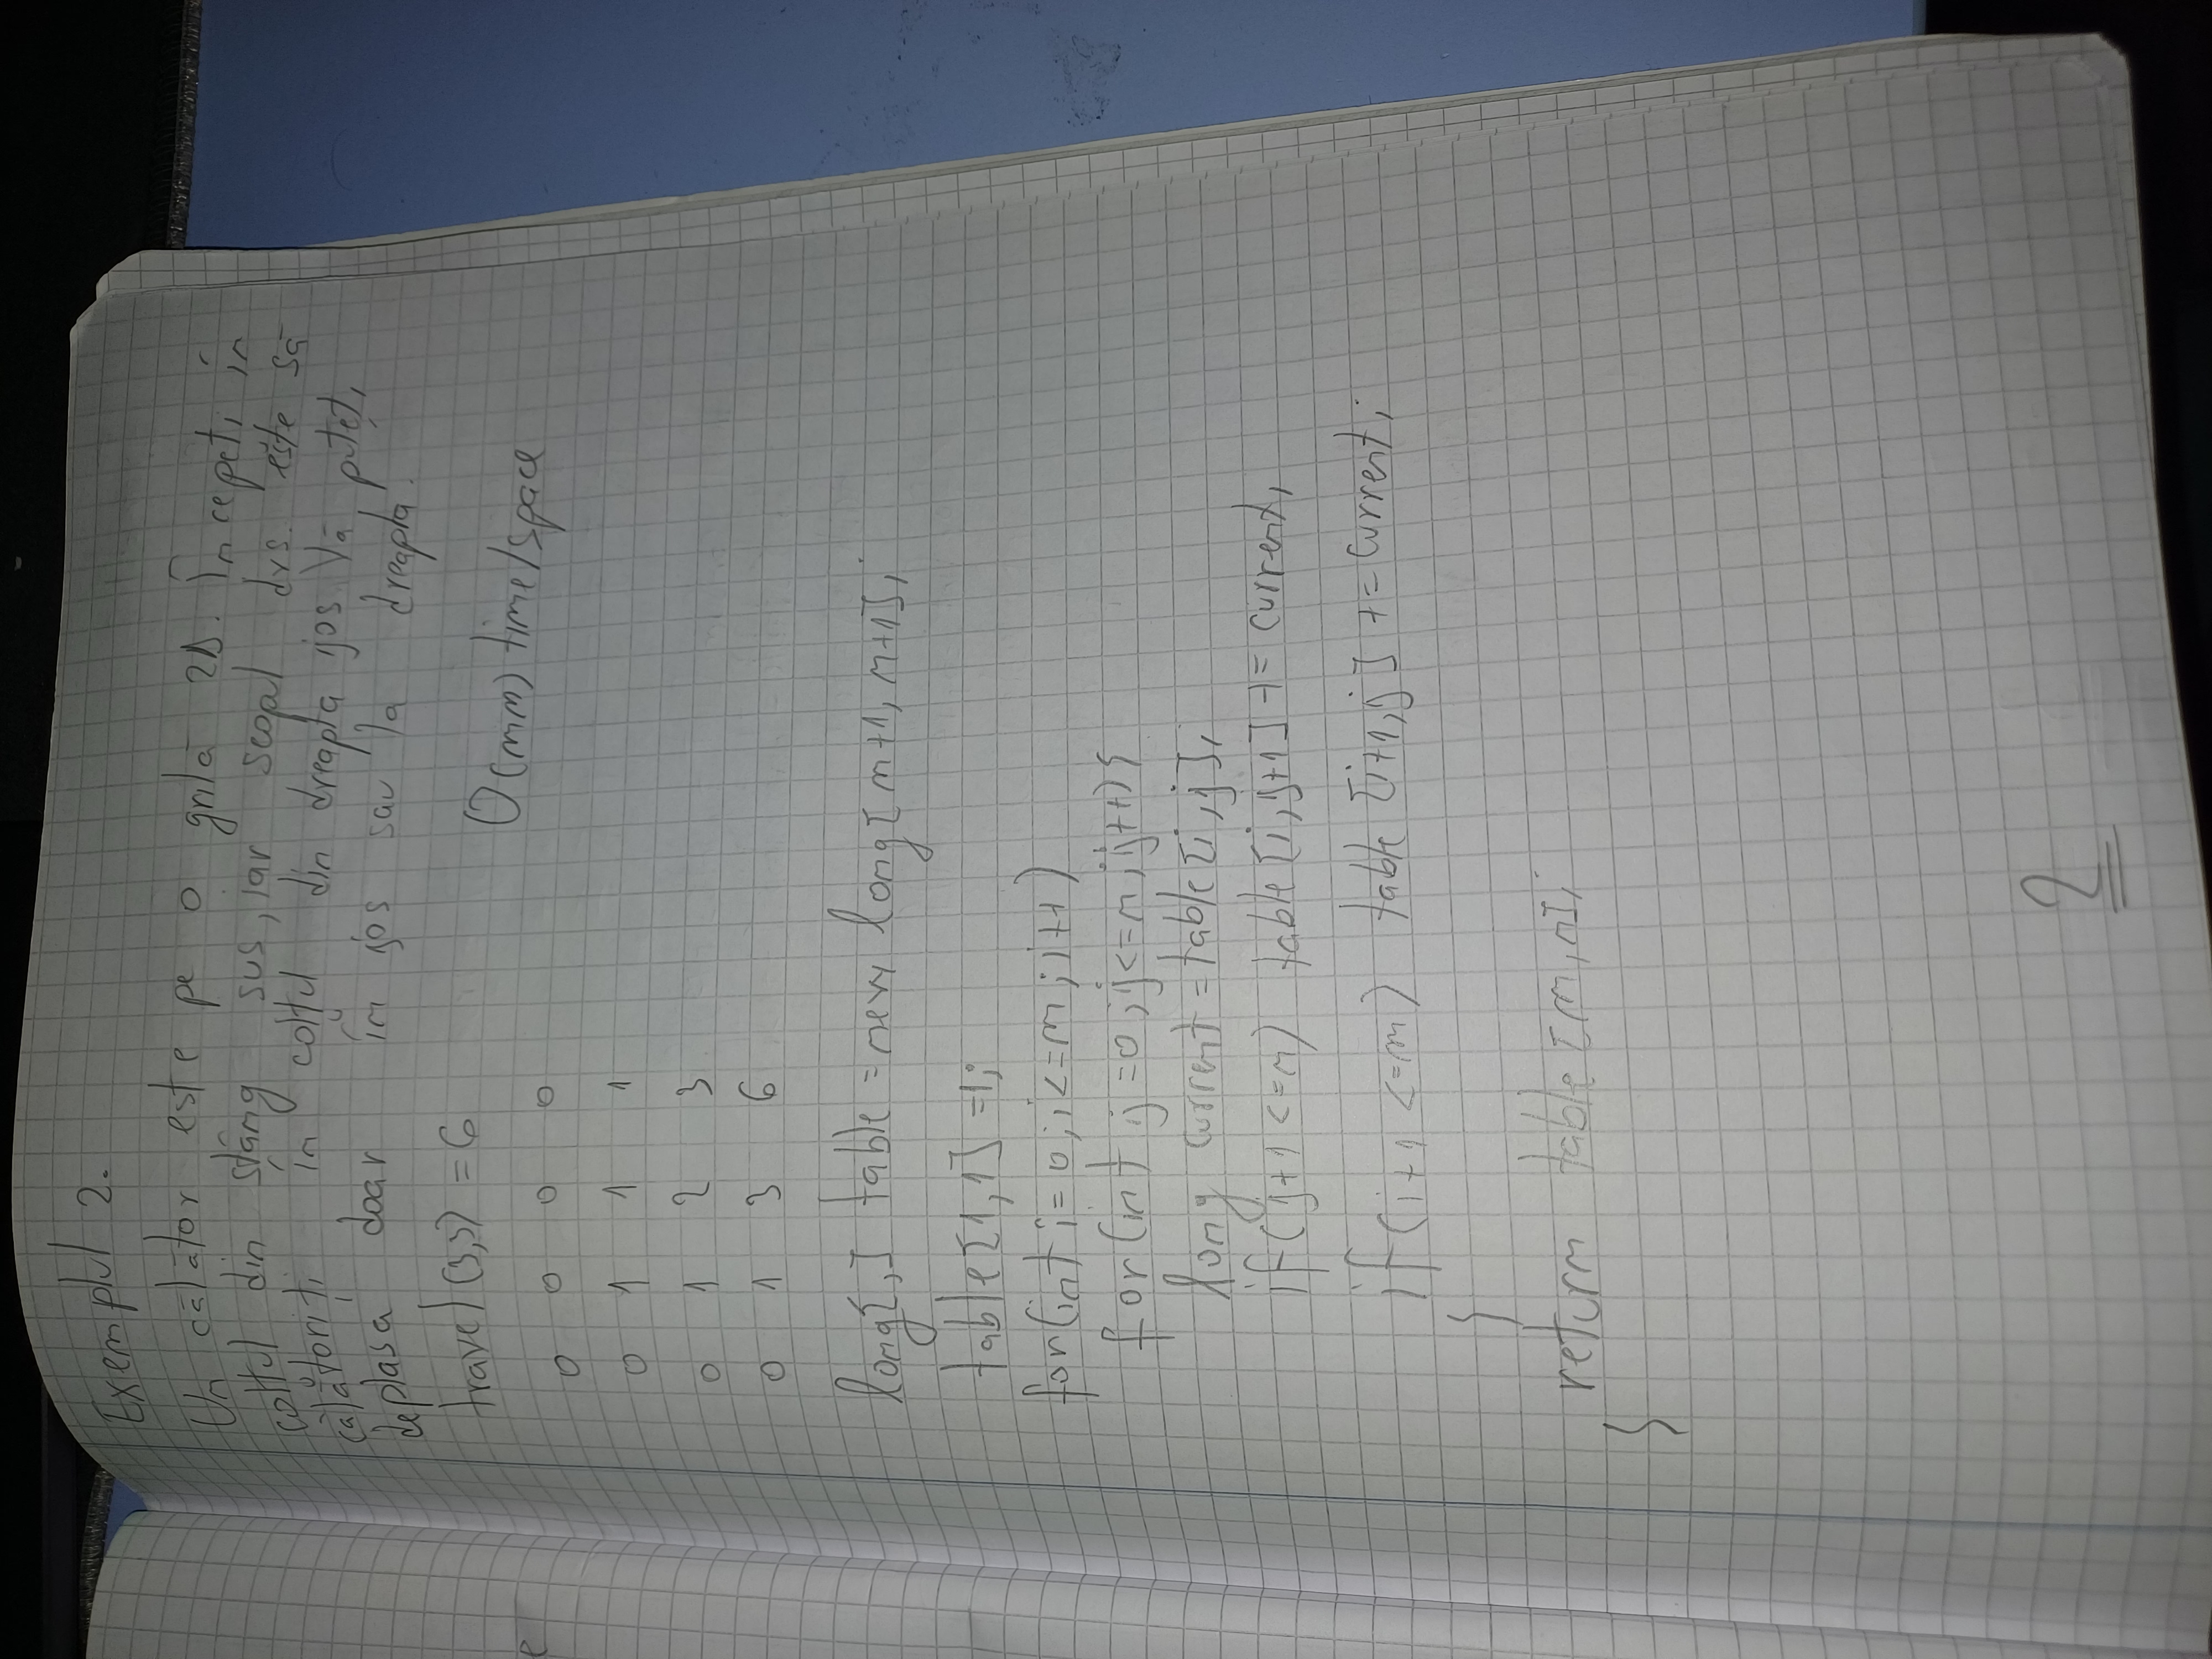 Exemplul 2.
Un călător este pe o grilă 2D. Începeți în
colțul din stâng sus, iar scopul dvs. este să
călătoriți în colțul din dreapta jos. Vă puteți
deplasa doar în jos sau la dreapta.
travel(3,3) = 6
O(mn) time/space
0 0 0 0
0 1 1 1
0 1 2 3
0 1 3 6
long[,] table = new long[m+1, n+1];
table[1,1] =1;
for(int i=0; i<=m; i++)
for(int j=0; j<=n; j++){
long current = table[i,j];
if(j+1 <=n) table[i,j+1] += current;
if(i+1 <=m) table[i+1,j] += current;
}
return table[m,n];
}
2
e